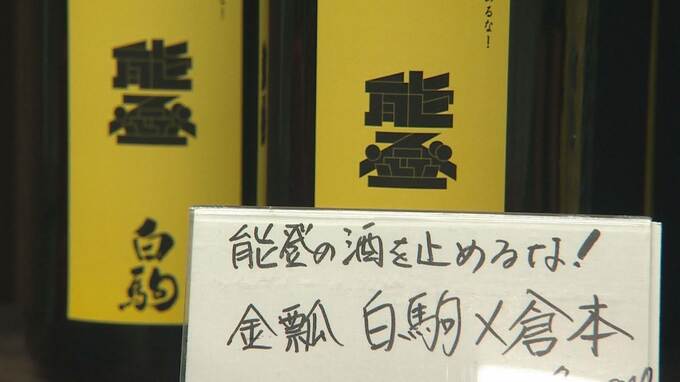 能登
白駒
るな！
能登
能登の酒を止めるな！
金瓢 白駒×倉本